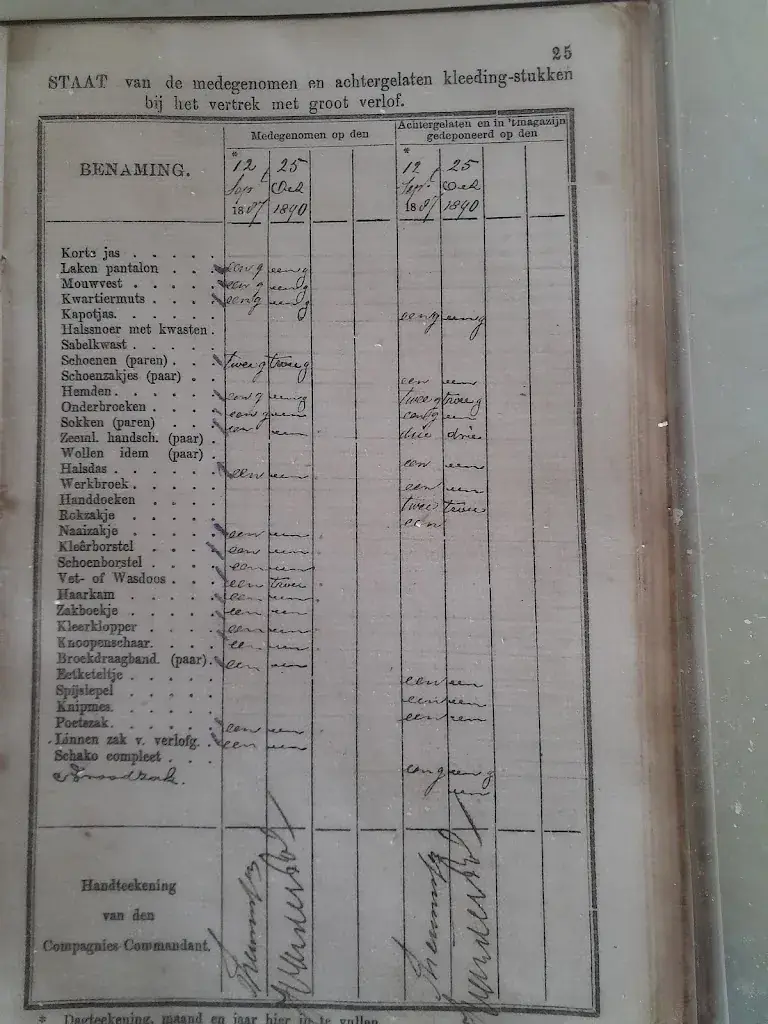 25
STAAT van de medegenomen en achtergelaten kleeding-stukken
bij het vertrek met groot verlof.
BENAMING. Medegenomen op den Achtergelaten en in 't magazijn gedeponeerd op den
* *
12 25 12 25
Sept Oct Sept Oct
1887 1890 1887 1890
Korte jas . . . . .
Laken pantalon . . . een g een g
Mouwvest . . . . . een g een g
Kwartiermuts . . . . een g een g
Kapotjas. . . . . . een g een g
Halssnoer met kwasten .
Sabelkwast . . . . .
Schoenen (paren) . . . twee g twee g
Schoenzakjes (paar) . . een een
Hemden. . . . . . een g een g twee g twee g
Onderbroeken . . . . een g een een g een
Sokken (paren) . . . een een drie drie
Zeeml. handsch. (paar) .
Wollen idem (paar) . een een
Halsdas . . . . . . een een
Werkbroek . . . . . een een
Handdoeken . . . . twee twee
Rokzakje . . . . . een
Naaizakje . . . . . een een
Kleêrborstel . . . . een een
Schoenborstel . . . . een een
Vet- of Wasdoos . . . een twee
Haarkam . . . . . een een
Zakboekje . . . . . een een
Kleerklopper . . . . een een
Knoopenschaar. . . . een een
Broekdraagband. (paar). een een
Eetketeltje . . . . . een een
Spijslepel . . . . . een een
Knipmes. . . . . . een een
Poetszak. . . . . . een een
Linnen zak v. verlofg. . een een
Schako compleet . . . een g een g
Broodzak. een
Handteekening
van den
Compagnies-Commandant.
* Dagteekening, maand en jaar hier in te vullen.